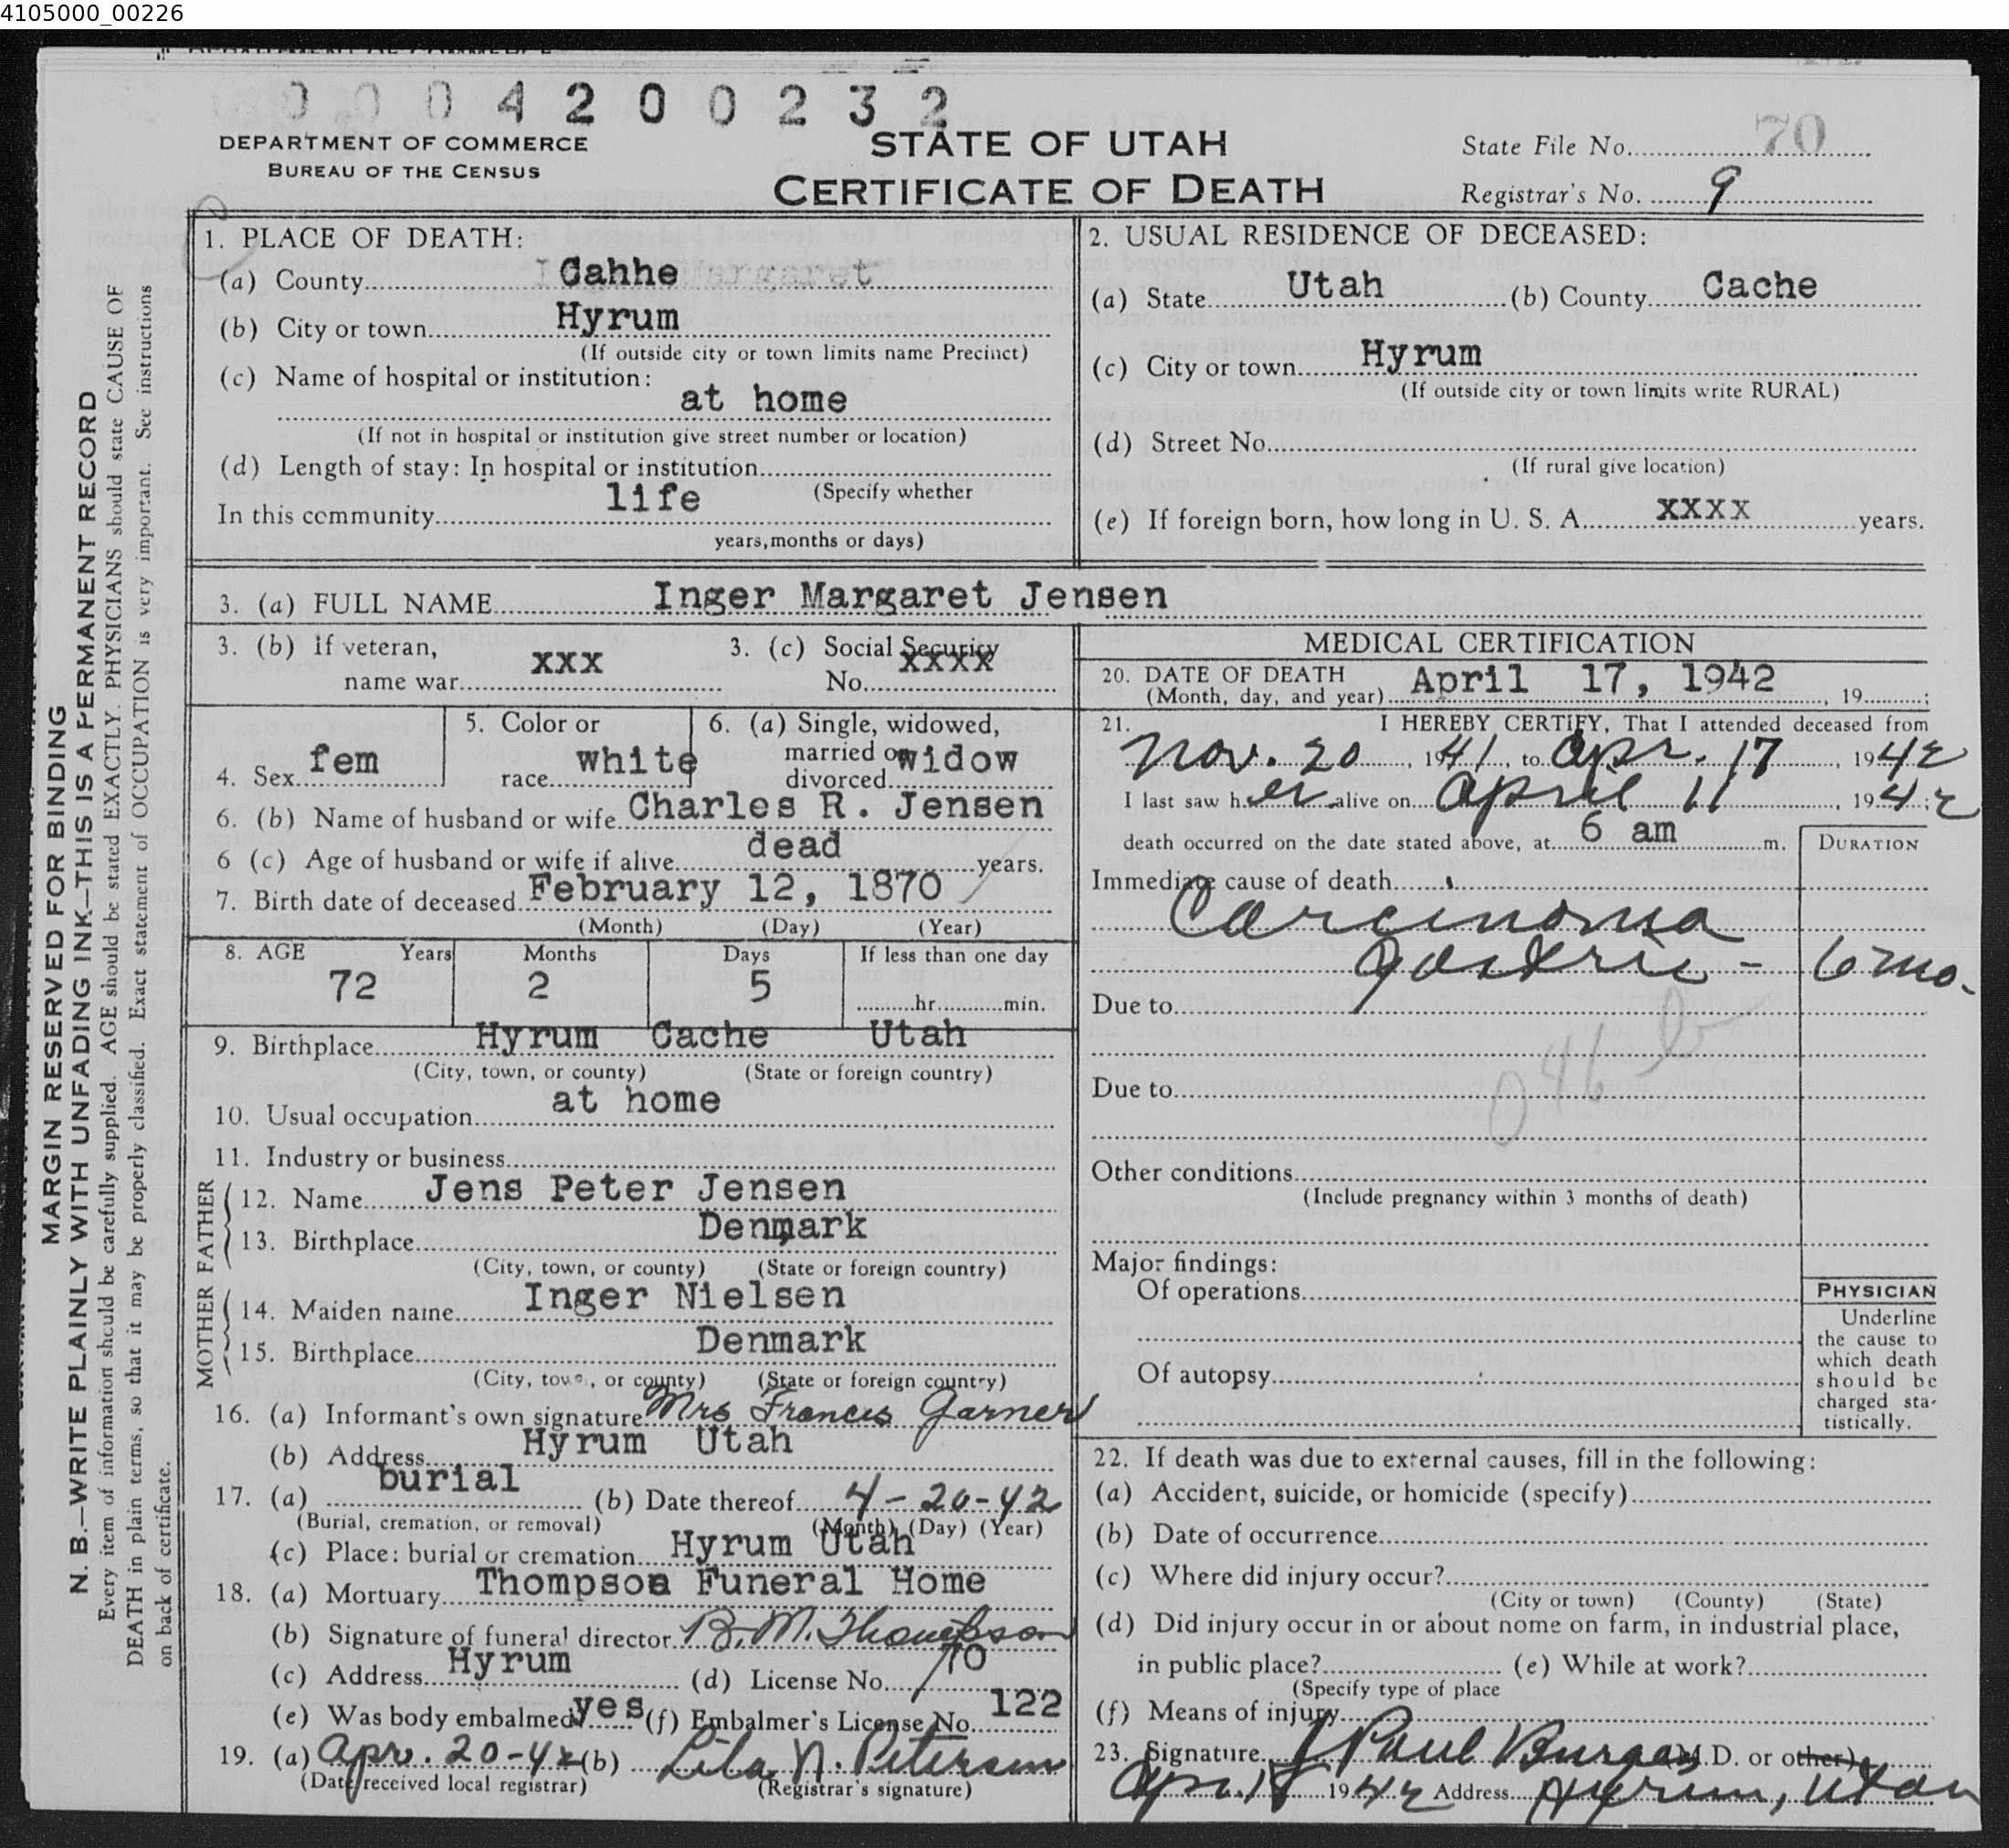 4105000_00226
0 0 0 4 2 0 0 2 3 2
DEPARTMENT OF COMMERCE
BUREAU OF THE CENSUS
STATE OF UTAH
CERTIFICATE OF DEATH
State File No. 70
Registrar's No. 9
MARGIN RESERVED FOR BINDING
N. B.—WRITE PLAINLY WITH UNFADING INK—THIS IS A PERMANENT RECORD
Every item of information should be carefully supplied. AGE should be stated EXACTLY. PHYSICIANS should state CAUSE OF
DEATH in plain terms, so that it may be properly classified. Exact statement of OCCUPATION is very important. See instructions
on back of certificate.
1. PLACE OF DEATH:
(a) County Cahhe
(b) City or town Hyrum
(If outside city or town limits name Precinct)
(c) Name of hospital or institution:
at home
(If not in hospital or institution give street number or location)
(d) Length of stay: In hospital or institution
(Specify whether
In this community life
years, months or days)
2. USUAL RESIDENCE OF DECEASED:
(a) State Utah (b) County Cache
(c) City or town Hyrum
(If outside city or town limits write RURAL)
(d) Street No.
(If rural give location)
(e) If foreign born, how long in U. S. A. XXXX years.
3. (a) FULL NAME Inger Margaret Jensen
3. (b) If veteran, name war xxx
3. (c) Social Security No. XXXX
4. Sex fem
5. Color or race white
6. (a) Single, widowed, married or divorced widow
6. (b) Name of husband or wife Charles R. Jensen
6 (c) Age of husband or wife if alive dead years.
7. Birth date of deceased February 12, 1870
(Month) (Day) (Year)
8. AGE Years Months Days If less than one day
72 2 5 hr. min.
9. Birthplace Hyrum Cache Utah
(City, town, or county) (State or foreign country)
10. Usual occupation at home
11. Industry or business
FATHER
12. Name Jens Peter Jensen
13. Birthplace Denmark
(City, town, or county) (State or foreign country)
MOTHER
14. Maiden name Inger Nielsen
15. Birthplace Denmark
(City, town, or county) (State or foreign country)
16. (a) Informant's own signature Mrs Francis Garner
(b) Address Hyrum Utah
17. (a) burial (b) Date thereof 4-20-42
(Burial, cremation, or removal) (Month) (Day) (Year)
(c) Place: burial or cremation Hyrum Utah
18. (a) Mortuary Thompson Funeral Home
(b) Signature of funeral director B. M. Thompson
(c) Address Hyrum (d) License No. 170
(e) Was body embalmed yes (f) Embalmer's License No. 122
19. (a) Apr. 20-42 (b) Lila N. Petersen
(Date received local registrar) (Registrar's signature)
MEDICAL CERTIFICATION
20. DATE OF DEATH
(Month, day, and year) April 17, 1942, 19 ;
21. I HEREBY CERTIFY, That I attended deceased from
Nov. 20, 1941, to Apr. 17, 1942
I last saw her alive on April 11, 1942;
death occurred on the date stated above, at 6 am m.
DURATION
Immediate cause of death
Carcinoma
Gastric - 6 mo.
Due to
046 b
Due to
Other conditions
(Include pregnancy within 3 months of death)
Major findings:
Of operations
Of autopsy
PHYSICIAN
Underline
the cause to
which death
should be
charged sta-
tistically.
22. If death was due to external causes, fill in the following:
(a) Accident, suicide, or homicide (specify)
(b) Date of occurrence
(c) Where did injury occur?
(City or town) (County) (State)
(d) Did injury occur in or about nome on farm, in industrial place,
in public place? (e) While at work?
(Specify type of place
(f) Means of injury
23. Signature J Paul Burgess (M.D. or other)
Apr. 18 1942 Address Hyrum, Utah